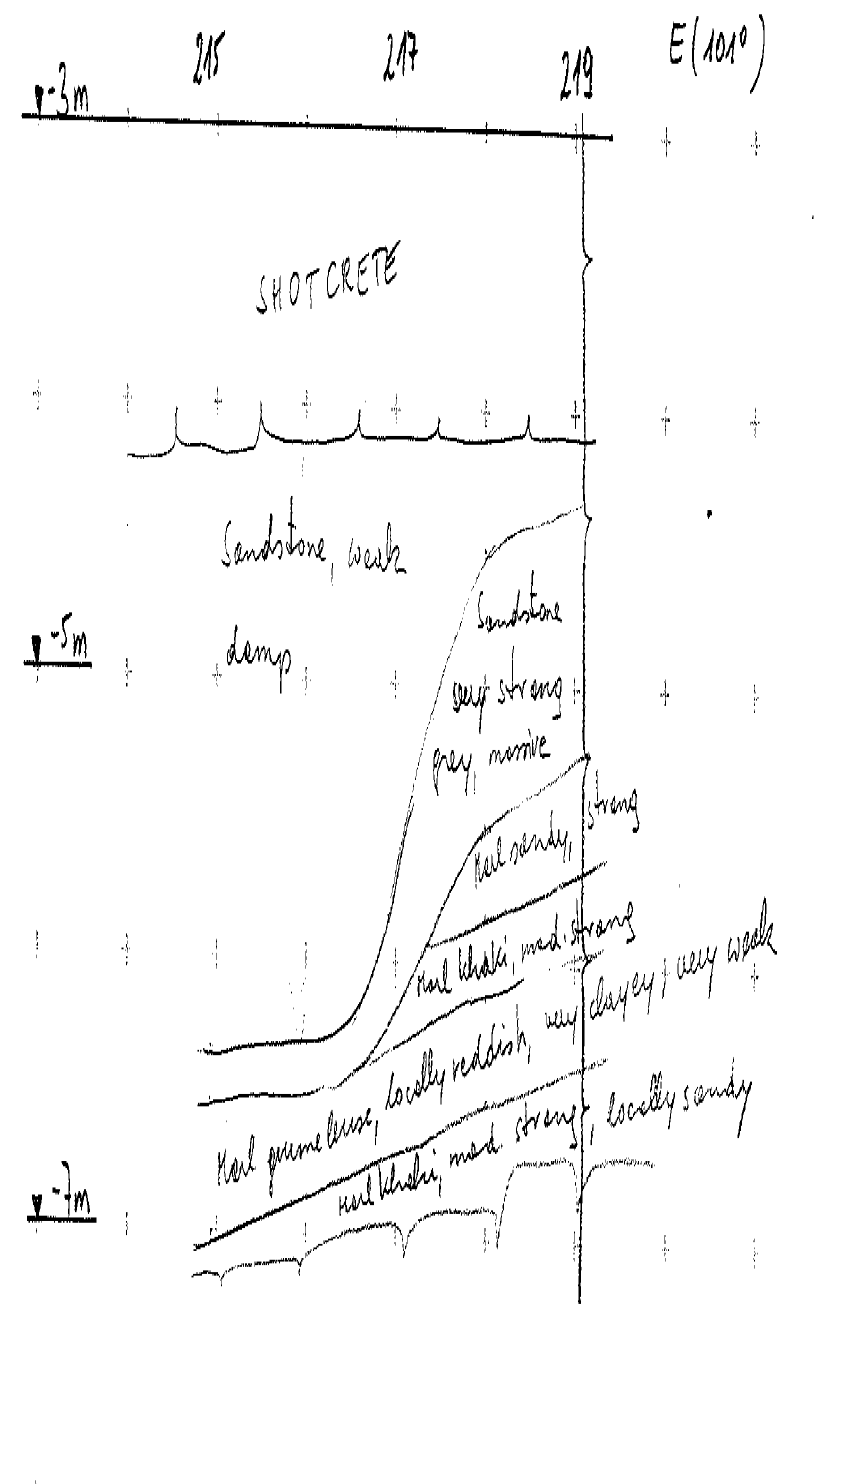 215 217 219 E(101°)
-3m
SHOTCRETE
Sandstone, weak
damp
-5m
Sandstone
very strong
grey, massive
Marl sandy, strong
Marl khaki, mod. strong
Marl grumeleuse, locally reddish, very clayey, very weak
Marl khaki, mod. strong, locally sandy
-7m